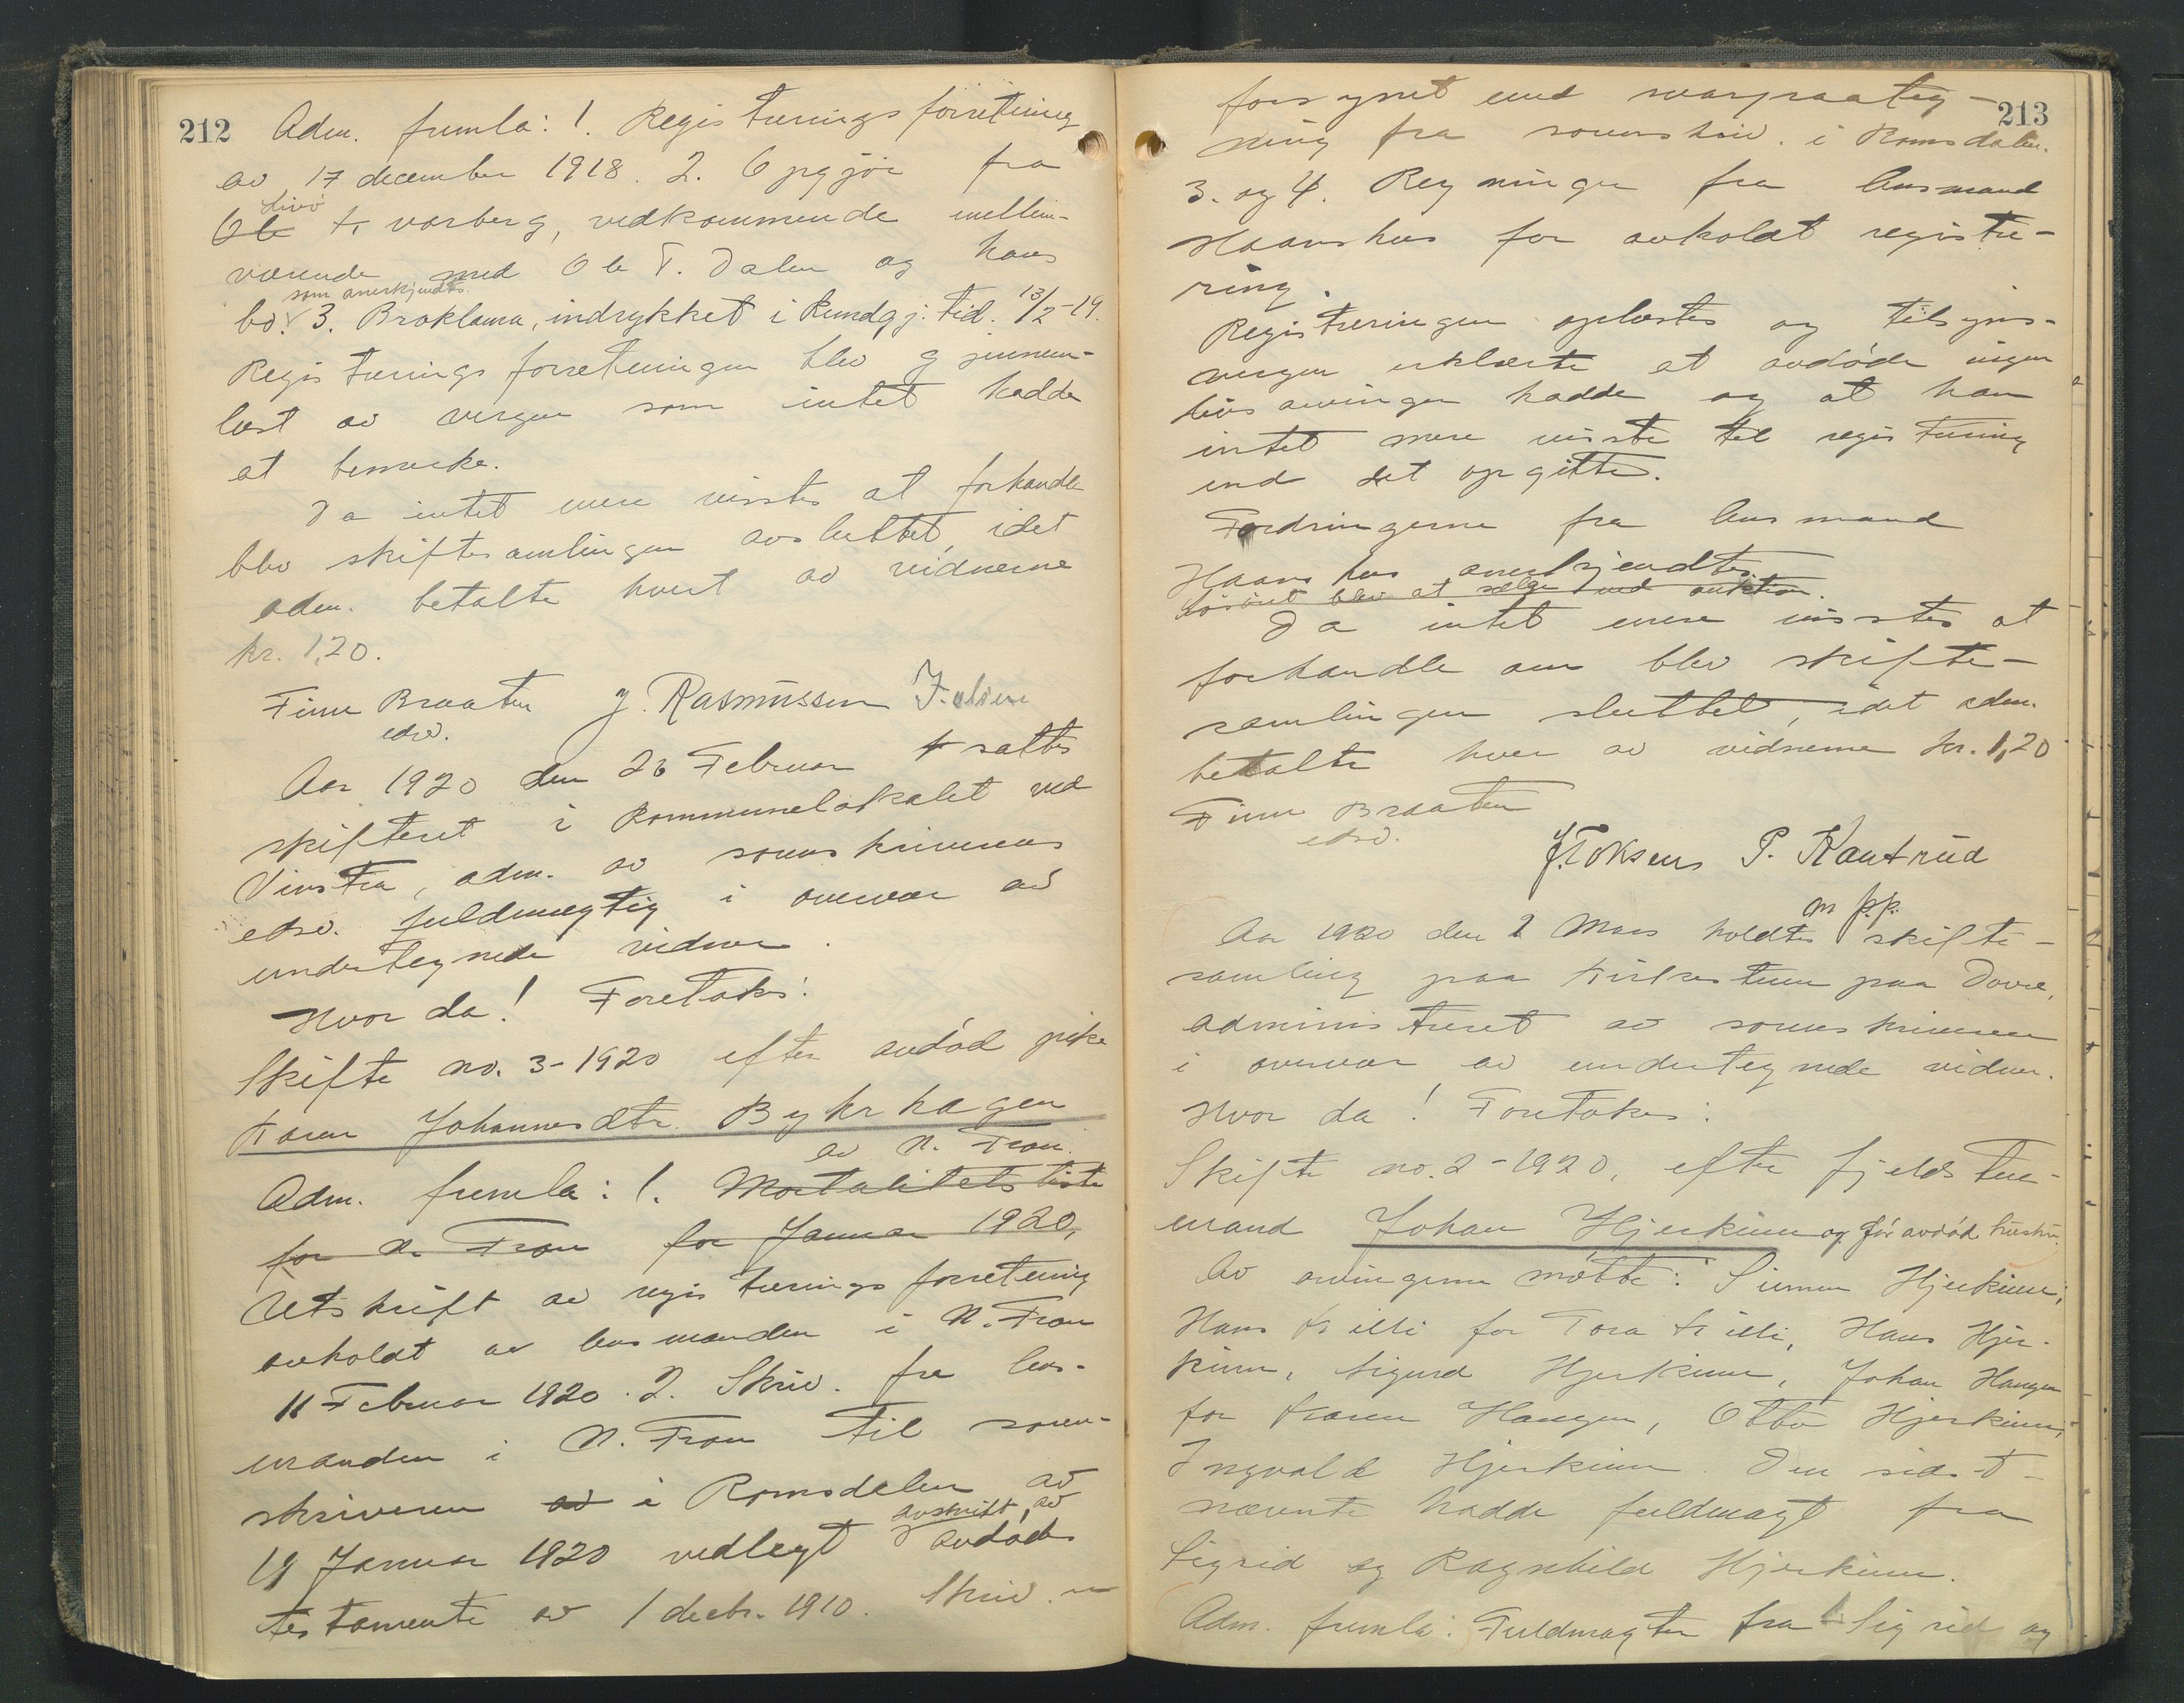 212
Adm. fremla: 1. Registreringsforretning
av 17 december 1918. 2. Opgjör fra
Ole Kvarberg, vedkommende mellem-
værende med Ole T. Dalen og hans
som anerkjendtes.
bo. 3. Proklama, indrykket i Kundgj. tid. 13/2-19.
Registreringsforretningen blev gjennem-
læst av vergen som intet hadde
at bemerke.
Da intet mere visstes at forhandle
blev skiftesamlingen avsluttet, idet
adm. betalte hvert av vidnerne
kr. 1,20.
Finn Braaten J. Rasmussen
edsv.
Aar 1920 den 26 Februar sattes
skifteret i kommunelokalet ved
Vinstra, adm. av sorenskriverens
edsv. fuldmægtig i overvær av
undertegnede vidner.
Hvor da! Foretokes:
Skifte no. 3-1920 efter avdöd pike
Karen Johannesdtr. Byhrhagen
av N. Fron.
Adm. fremla: 1. Mortalitetsliste
for N. Fron for Januar 1920,
Utskrift av registreringsforretning
avholdt av lensmanden i N. Fron
11 Februar 1920. 2. Skriv. fra lens-
manden i N. Fron til soren-
skriveren av i Romsdalen av
avskrift av
19 Januar 1920 vedlegt avdödes
testamente av 1 decbr. 1910. Skriv.
213
forsynet med svarpaateg-
ning fra sorenskriv. i Romsdalen.
3. og 4. Regninger fra lensmand
Haanshus for avholdt registre-
ring.
Registreringen oplæstes og tilsyns-
vergen erklærte at avdöde ingen
livsarvinger hadde og at han
intet mere visste til registrering
end det opgitte.
Fordringerne fra lensmand
Haanshus anerkjendtes.
Lösöret blev at sælge ved auktion.
Da intet mere visstes at
forhandle om blev skifte-
samlingen sluttet, idet adm.
betalte hver av vidnerne kr. 1,20
Finn Braaten
edsv.
J. Toksen P. Kantrud
m p.p.
Aar 1920 den 2 Mars holdtes skifte-
samling paa Kirkestuen paa Dovre,
administreret av sorenskriveren
i overvær av undertegnede vidner.
Hvor da! Foretokes:
Skifte no. 2-1920, efter fjeldstue-
mand Johan Hjerkinn og för avdöd hustru.
Av arvingerne mötte: Simen Hjerkinn,
Hans Killi for Tora Killi, Hans Hjer-
kinn, Sigurd Hjerkinn, Johan Haugen
for Karen Haugen, Otto Hjerkinn,
Ingvald Hjerkinn. Den sidst-
nævnte hadde fuldmagt fra
Sigrid og Ragnhild Hjerkinn.
Adm. fremla: Fuldmagter fra Sigrid og